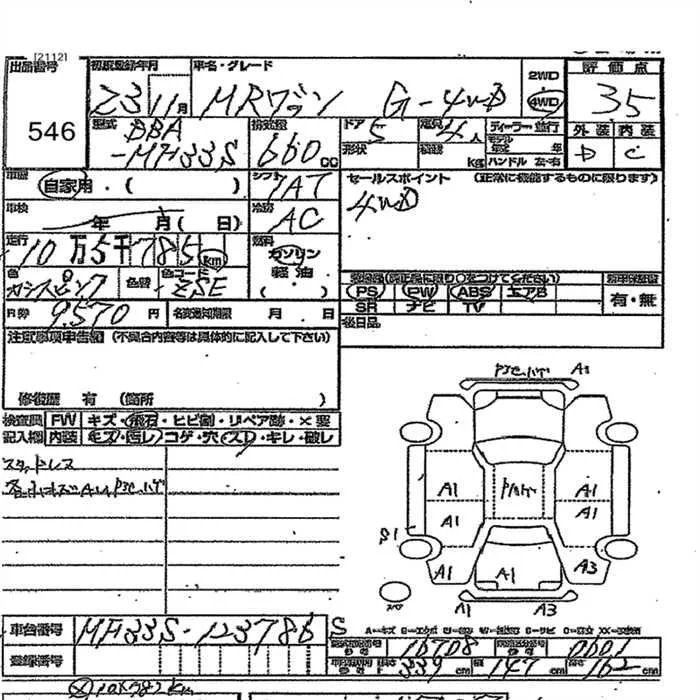 [2112]
出品番号
546
初度登録年月
Z3 11月
車名・グレード
MRワゴン G-4WD
2WD
4WD
評価点
35
外装 内装
D C
型式
DBA
-MH33S
排気量
660 cc
ドア 5
形状
定員 4人
積載 kg
ディーラー 並行
モデル 年
ハンドル 左・右
車歴
自家用・( )
シフト
7AT
セールスポイント (正常に機能するものに限ります)
4WD
車検
年 月 ( 日)
冷房
AC
走行
10万5千785km
燃料
ガソリン
軽油
( )
色
カシスピンク
色替
色コード
ZSE
PS PW ABS エアB
SR ナビ TV
有・無
R券
9,570円
名変通知期限 月 日
後日品
注意事項申告欄 (不具合内容等は具体的に記入して下さい)
修復歴 有 (箇所 )
検査員 FW キズ・飛石・ヒビ割・リペア跡・×要
記入欄 内装 キズ・汚レ・コゲ・穴・スレ・キレ・破レ
スタッドレス
A1
A1 A1
A1 A1
S1
A1 A3
A1
スペア
A1 A3
車台番号
MH33S-123786
S
登録番号
16708
0001
339cm
幅 147cm
高さ 162cm